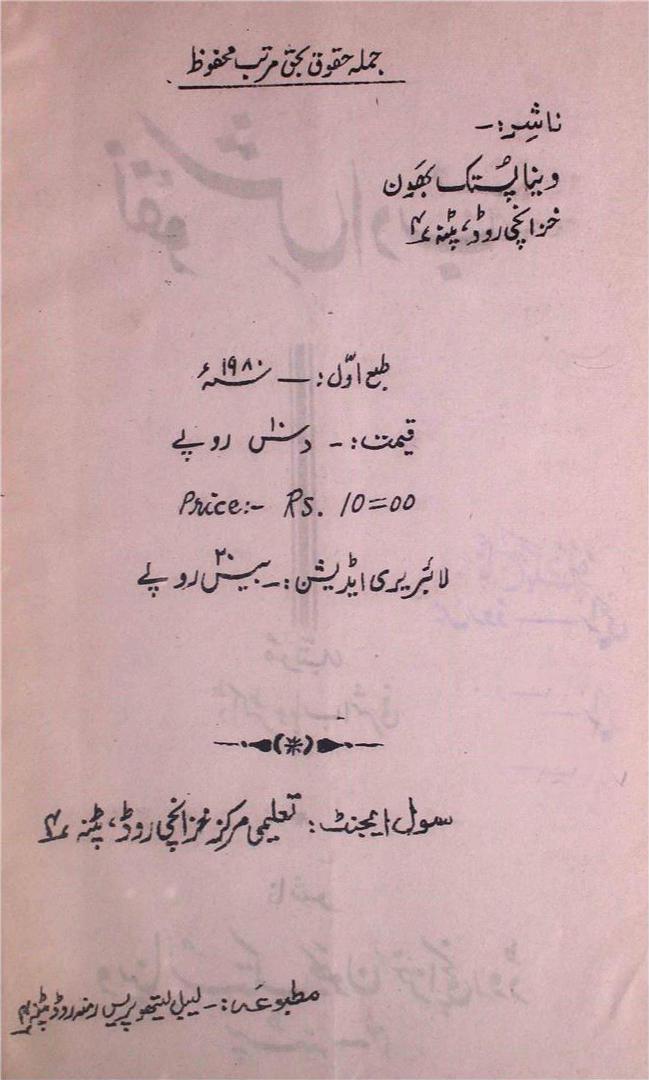 جملہ حقوق بحق مرتب محفوظ
ناشِر:۔
وینا پُستک بھَون
خزانچی روڈ، پٹنہ ۴
طبع اوّل:۔ ۱۹۸۰ء
قیمت:۔ دس ۱۰ روپے
Price:- Rs. 10=00
لائبریری ایڈیشن:۔ بیس ۲۰ روپے
سول ایجنٹ: تعلیمی مرکز خزانچی روڈ، پٹنہ ۴
مطبوعَہ:۔ لیبل لیتھو پریس رمنہ روڈ پٹنہ ۴